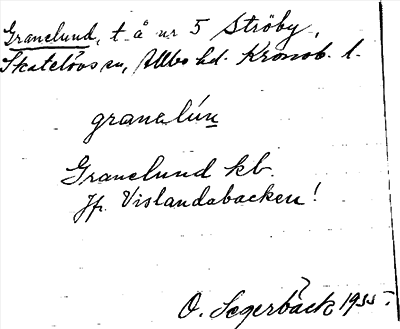 Granelund, t. å nr 5 Ströby,
Skatelövs sn, Allbo hd. Kronob. l.
granelún
Granelund kb.
Jfr Vislandabacken!
O. Segerbäck 1935.